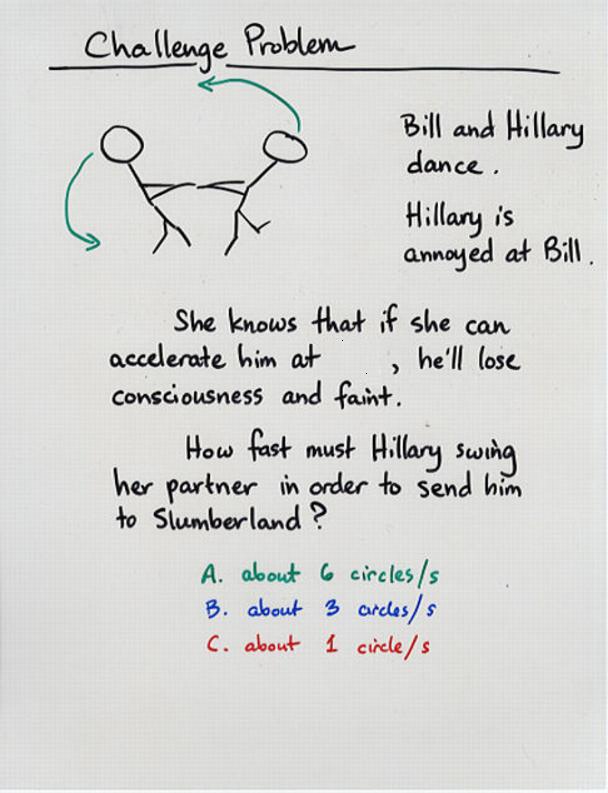 Challenge Problem
Bill and Hillary
dance.
Hillary is
annoyed at Bill.
She knows that if she can
accelerate him at , he'll lose
consciousness and faint.
How fast must Hillary swing
her partner in order to send him
to Slumberland?
A. about 6 circles/s
B. about 3 circles/s
C. about 1 circle/s